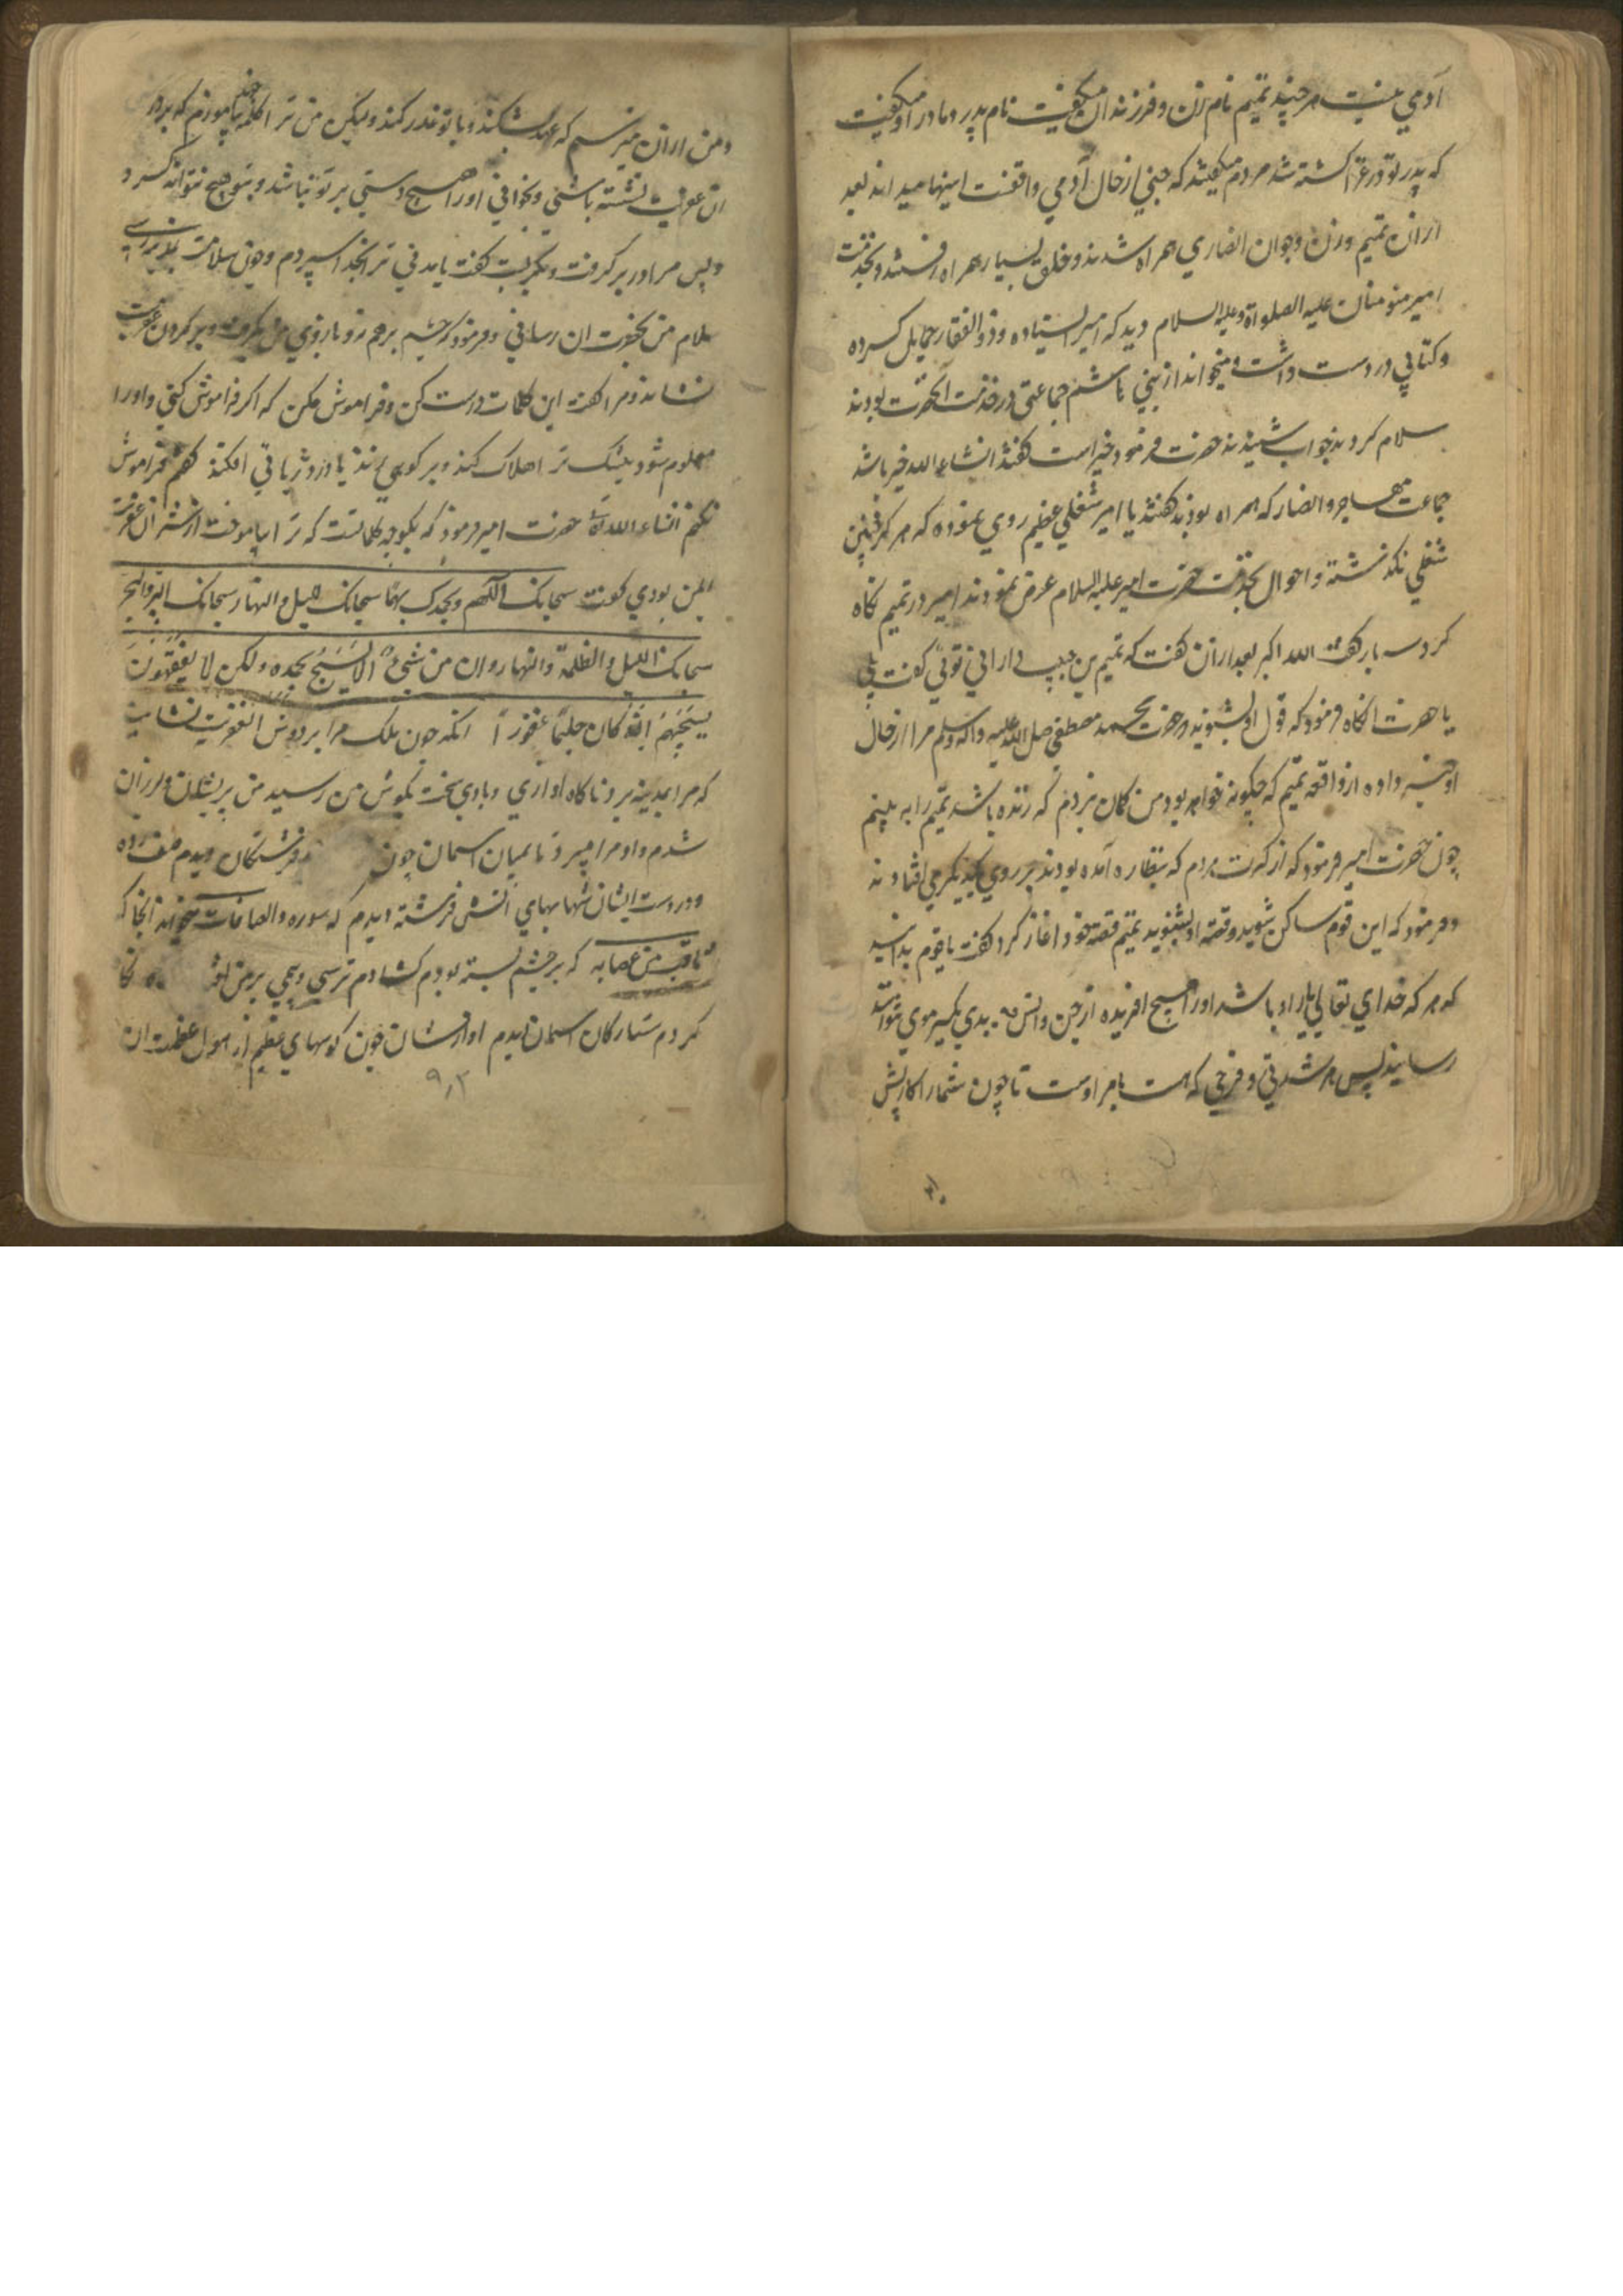 آدمي نیست هر چند تمیم نام زن و فرزندان میگفت نام پدر و مادر او میگفت
که پدر تو در غزا کشته شد مردم میگفتند که جنی از حال آدمي واقفست اینها میداند بعد
ازان تمیم و زن و جوان انصاري همراه شدند و خلق بسیار همراه رفتند و بخدمت
امیر مومنان علیه الصلواة و علیه السلام دید که امیر ایستاده و ذوالفقار حمایل کرده
و کتابي در دست داشت و میخواند از بني هاشم جماعتی در خدمت آنحضرت بودند
سلام کردند جواب شنیدند حضرت فرمود خیر است گفتند انشاء الله خیر باشد
جماعت مهاجر و انصار که همراه بودند گفتند یا امیر شغلي عظیم روي نموده که هرگز چنین
شغلي نگذشته و احوال بخدمت حضرت امیر علیه السلام عرض نمودند امیر در تمیم نگاه
کرد سه بار گفت الله اکبر بعد ازان گفت که تمیم بن حبیب داراني توئي گفت بلي
یا حضرت انگاه فرمود که قول او بشنوید حضرت محمد مصطفی صلی الله علیه و آله وسلم مرا از حال
او خبر داده از واقعه تمیم که چگونه خواهد بود من گمان نبردم که زنده باشد تمیم را به بینم
چون حضرت امیر فرمود که از کثرت مردم که بنظاره آمده بودند بر روي یکدیگر مي افتادند
و فرمود که این قوم ساکن شوید و قصه او بشنوید تمیم قصه خود اغاز کرد گفت یا قوم بدانید
که هر که خداي تعالي یار او باشد او را هیچ افریده از جن و انس بدي یکسر موي نتواند
رسانید پس هر شدتي و فرحي که هست بامر اوست تا چون شما را کار پیش
و من ازان میترسم که عهد بشکند و با تو غدر کند ولیکن من ترا کلمه چند بیاموزم که بر
ان عفریت نشسته باشي و بخواني او را هیچ دستی بر تو نباشد و بتو هیچ نتواند کرد
و پس مرا در بر گرفت و بگریست گفت یا مدني ترا بخدا سپردم و چون سلامت برسي
سلام من بحضرت ان رساني و فرمود که چشم بر هم نه و بازوي من بگرفت و بر گردن عفریت
نشاند و مرا گفت این کلمات درست کن و فراموش مکن که اگر فراموش کني و او را
معلوم شود بیشک ترا هلاک کند و بر کوهي زند یا در دریائي افکند گفتم فراموش
نکنم انشاء الله حضرت امیر فرمود که بگو چه کلماتست که ترا بیاموخت از شر ان عفریت
ایمن بودي گفت سبحانک اللهم و بحمدک سبحانک اللیل و النهار سبحانک البر و البحر
سبحانک اللیل و الظلمة و النهار و ان من شيء الا یسبح بحمده ولکن لا یفقهون
تسبیحهم انه کان حلیما غفورا انگه چون ملک مرا بر دوش العفریت نشانید
که مرا بمدینه برد ناگاه اوازي و بادي سخت بگوش من رسید من پریشان و لرزان
شدم و او مرا میبرد تا بمیان اسمان چون فرشتگان دیدم صف زده
و در دست ایشان شهابهاي آتش فرشته دیدم که سوره والصافات میخواند انجا که
ثاقب من عصابه که بر چشم بسته بودم کشادم ترسي و بیمي بر من نگا
کردم ستارگان اسمان دیدم اواز ایشان چون کوههاي عظیم از هول عظمت ان